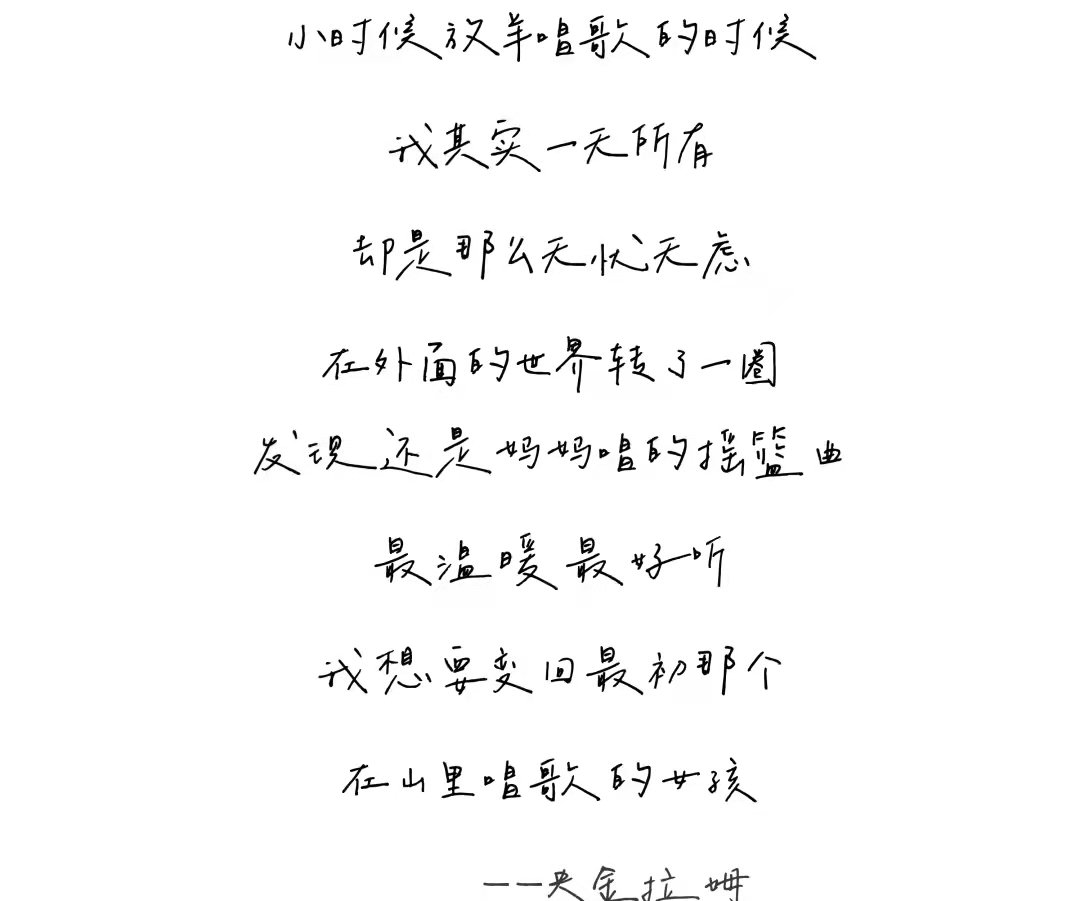 小时候放羊唱歌的时候
我其实一无所有
却是那么无忧无虑
在外面的世界转了一圈
发现还是妈妈唱的摇篮曲
最温暖最好听
我想要变回最初那个
在山里唱歌的女孩
——央金拉姆